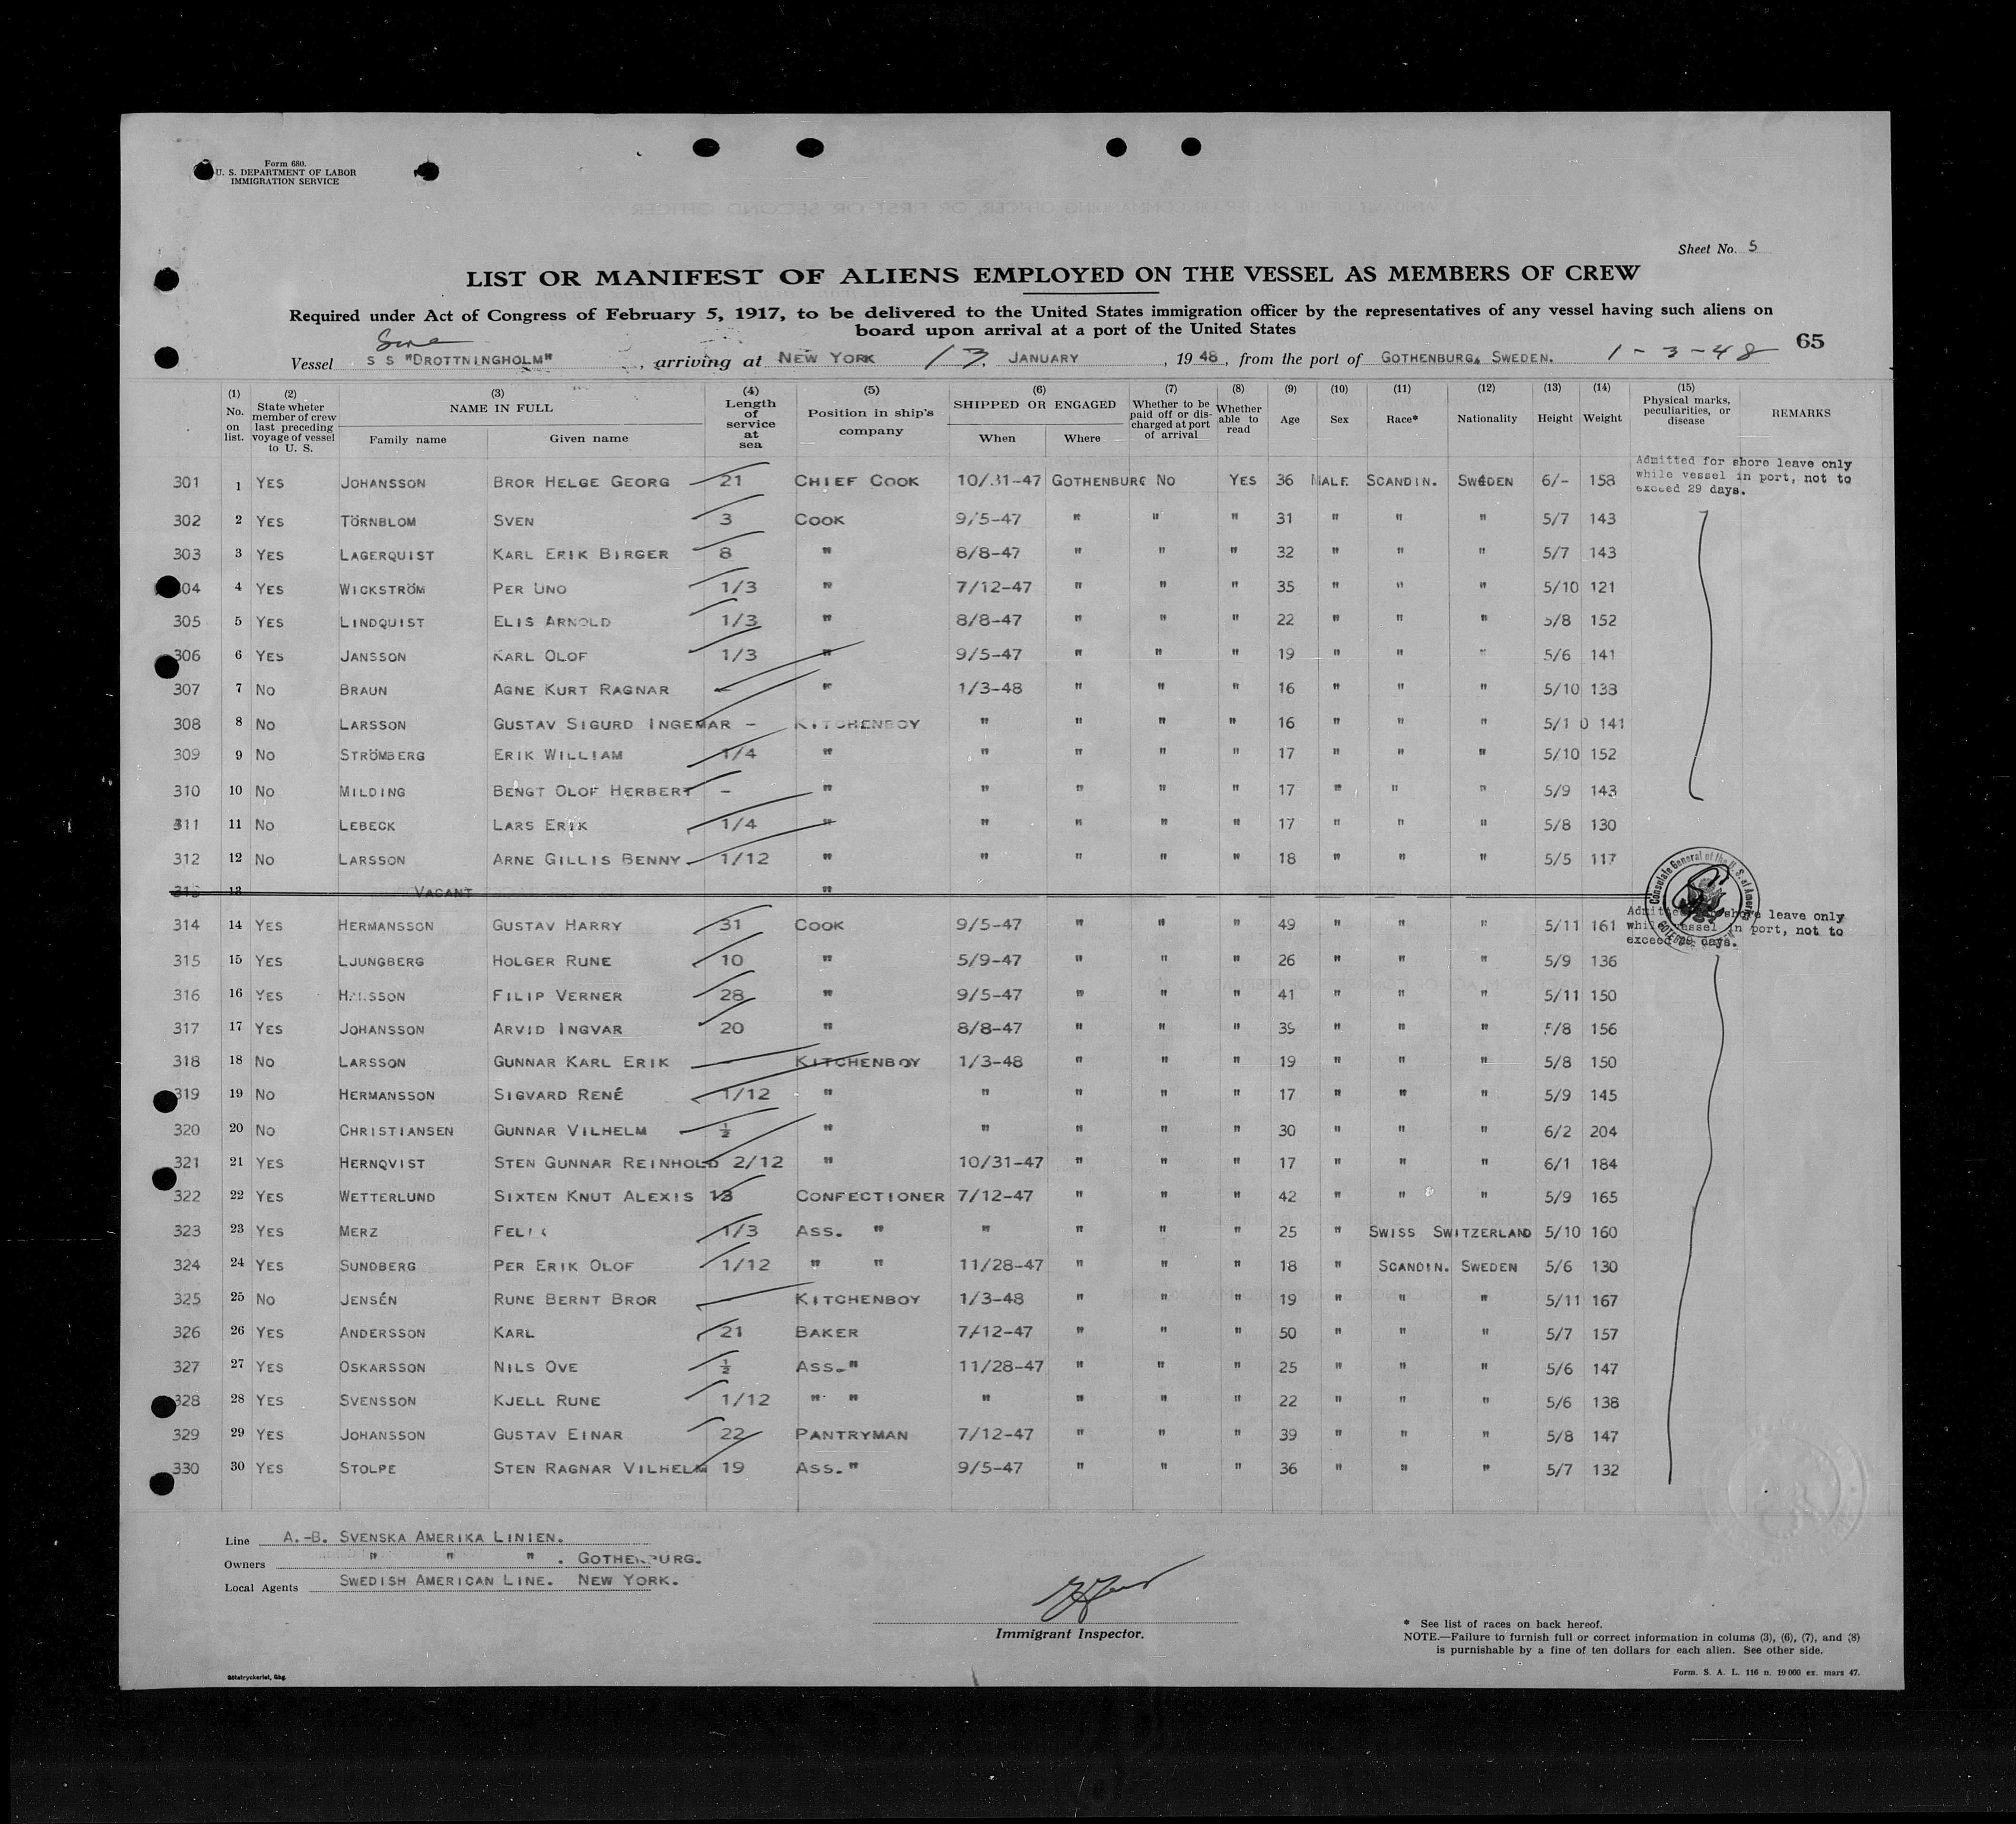 Form 680.
U. S. DEPARTMENT OF LABOR
IMMIGRATION SERVICE
Sheet No. 5
LIST OR MANIFEST OF ALIENS EMPLOYED ON THE VESSEL AS MEMBERS OF CREW
Required under Act of Congress of February 5, 1917, to be delivered to the United States immigration officer by the representatives of any vessel having such aliens on
board upon arrival at a port of the United States
65
Vessel S S "DROTTNINGHOLM", arriving at NEW YORK 13. JANUARY, 1948, from the port of GOTHENBURG, SWEDEN. 1-3-48
(1) No. on list. (2) State wheter member of crew last preceding voyage of vessel to U. S. (3) NAME IN FULL Family name Given name (4) Length of service at sea (5) Position in ship's company (6) SHIPPED OR ENGAGED When Where (7) Whether to be paid off or discharged at port of arrival (8) Whether able to read (9) Age (10) Sex (11) Race* (12) Nationality (13) Height (14) Weight (15) Physical marks, peculiarities, or disease REMARKS
Admitted for shore leave only
while vessel in port, not to
exceed 29 days.
301 1 YES JOHANSSON BROR HELGE GEORG 21 CHIEF COOK 10/31-47 GOTHENBURG NO YES 36 MALE SCANDIN. SWEDEN 6/- 158
302 2 YES TÖRNBLOM SVEN 3 COOK 9/5-47 " " " 31 " " " 5/7 143
303 3 YES LAGERQUIST KARL ERIK BIRGER 8 " 8/8-47 " " " 32 " " " 5/7 143
304 4 YES WICKSTRÖM PER UNO 1/3 " 7/12-47 " " " 35 " " " 5/10 121
305 5 YES LINDQUIST ELIS ARNOLD 1/3 " 8/8-47 " " " 22 " " " 5/8 152
306 6 YES JANSSON KARL OLOF 1/3 " 9/5-47 " " " 19 " " " 5/6 141
307 7 NO BRAUN AGNE KURT RAGNAR - " 1/3-48 " " " 16 " " " 5/10 138
308 8 NO LARSSON GUSTAV SIGURD INGEMAR - KITCHENBOY " " " " 16 " " " 5/10 141
309 9 NO STRÖMBERG ERIK WILLIAM 1/4 " " " " " 17 " " " 5/10 152
310 10 NO MILDING BENGT OLOF HERBERT - " " " " " 17 " " " 5/9 143
311 11 NO LEBECK LARS ERIK 1/4 " " " " " 17 " " " 5/8 130
312 12 NO LARSSON ARNE GILLIS BENNY 1/12 " " " " " 18 " " " 5/5 117
313 13 VACANT "
Consulate General of the U. S. of America
Admitted for shore leave only
while vessel in port, not to
exceed 29 days.
314 14 YES HERMANSSON GUSTAV HARRY 31 COOK 9/5-47 " " " 49 " " " 5/11 161
315 15 YES LJUNGBERG HOLGER RUNE 10 " 5/9-47 " " " 26 " " " 5/9 136
316 16 YES FILIP VERNER 28 " 9/5-47 " " " 41 " " " 5/11 150
317 17 YES JOHANSSON ARVID INGVAR 20 " 8/8-47 " " " 39 " " " 5/8 156
318 18 NO LARSSON GUNNAR KARL ERIK - KITCHENBOY 1/3-48 " " " 19 " " " 5/8 150
319 19 NO HERMANSSON SIGVARD RENÉ 1/12 " " " " " 17 " " " 5/9 145
320 20 NO CHRISTIANSEN GUNNAR VILHELM ½ " " " " " 30 " " " 6/2 204
321 21 YES HERNQVIST STEN GUNNAR REINHOLD 2/12 " 10/31-47 " " " 17 " " " 6/1 184
322 22 YES WETTERLUND SIXTEN KNUT ALEXIS 13 CONFECTIONER 7/12-47 " " " 42 " " " 5/9 165
323 23 YES MERZ FELIX 1/3 ASS. " " " " " 25 " SWISS SWITZERLAND 5/10 160
324 24 YES SUNDBERG PER ERIK OLOF 1/12 " " 11/28-47 " " " 18 " SCANDIN. SWEDEN 5/6 130
325 25 NO JENSÉN RUNE BERNT BROR - KITCHENBOY 1/3-48 " " " 19 " " " 5/11 167
326 26 YES ANDERSSON KARL 21 BAKER 7/12-47 " " " 50 " " " 5/7 157
327 27 YES OSKARSSON NILS OVE ½ ASS. " 11/28-47 " " " 25 " " " 5/6 147
328 28 YES SVENSSON KJELL RUNE 1/12 " " " " " " 22 " " " 5/6 138
329 29 YES JOHANSSON GUSTAV EINAR 22 PANTRYMAN 7/12-47 " " " 39 " " " 5/8 147
330 30 YES STOLPE STEN RAGNAR VILHELM 19 ASS. " 9/5-47 " " " 36 " " " 5/7 132
Line A.-B. SVENSKA AMERIKA LINIEN.
Owners " " " . GOTHENBURG.
Local Agents SWEDISH AMERICAN LINE. NEW YORK.
Immigrant Inspector.
* See list of races on back hereof.
NOTE.—Failure to furnish full or correct information in colums (3), (6), (7), and (8)
is purnishable by a fine of ten dollars for each alien. See other side.
Götatryckeriet, Gbg.
Form. S. A. L. 116 n. 19 000 ex. mars 47.